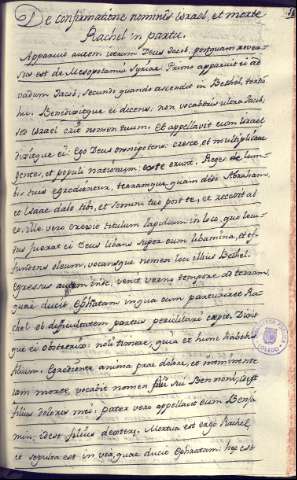 De confirmatione nominis Israel, et morte
Rachel in partu.
Apparuit autem iterum Deus Jacob, postquam rever
sus est de Mesopotamia Syriae. Primo apparuit ei ad
vadum Jacob, secundo quando ascendit in Bethel
Benedixitque ei dicens. non vocaberis ultra Jacob,
sed Israel erit nomen tuum. Et appellavit eum Israel
dixitque ei. Ego Deus omnipotens cresce, et multiplicare
gentes, et populi nationum ex te erunt. Reges de lum-
bis tuis egredientur, terramque, quam dedi Abraham,
et Isaac dabo tibi, et semini tuo post te, et recessit ab
eo. Ille vero erexit titulum lapideum in loco, quo locu-
tus fuerat ei Deus libans super eum libamina, et ef-
fundens oleum, vocansque nomen loci illius Bethel.
Egressus autem inde, venit verno tempore ad terram,
quae ducit Ephratam in qua cum parturiret Ra
chel ob difficultatem partus periclitari cepit. Dixit
que ei obstetrix: noli timere, quia et hunc habebis
filium. Egrediente anima prae dolore, et imminente
iam morte, vocabit nomen filii sui Ben noni, id est
filius doloris mei: pater vero appellavit eum Benja
min, id est filius dexterae. Mortua est ergo Rachel,
et sepulta est in via, quae ducit Ephratam: hec est